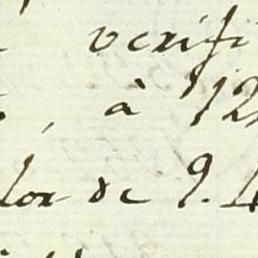 verifi
, à 12
lor de 9.